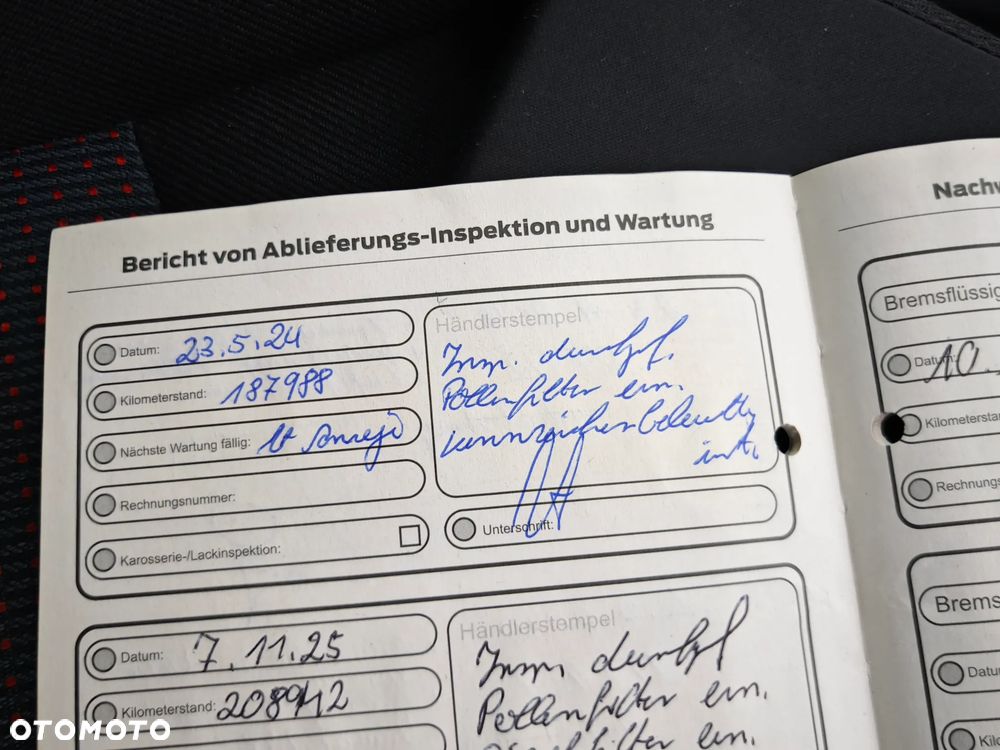 Bericht von Ablieferungs-Inspektion und Wartung
Datum: 23.5.24
Kilometerstand: 187988
Nächste Wartung fällig: lt. Anzeige
Rechnungsnummer:
Karosserie-/Lackinspektion:
Händlerstempel
durchgef.
Pollenfilter ern.
Kennzeichenbeleucht.
inst.
Unterschrift:
Datum: 7.11.25
Kilometerstand:
Händlerstempel
durchgef
Pollenfilter ern.
ern.
Nachw
Bremsflüssig
Datum: 10.
Kilometersta
Rechnungs
Brems
Datu
Kilo
OTOMOTO